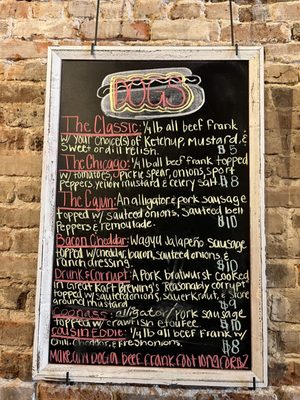 DOGS
The Classic: 1/4 lb all beef frank
w/ your choice(s) of Ketchup, Mustard, &
Sweet or dill relish. $5
The Chicago: 1/4 lb all beef frank topped
w/ tomatoes, pickle spear, onions, sport
Peppers, yellow mustard & celery salt $8
The Cajun: An alligator & pork sausage
topped with sauteed onions, sauteed bell
Peppers & remoulade. $10
Bacon Cheddar: Wagyu Jalapeño sausage
topped w/ cheddar, bacon, sauteed onions, &
ranch dressing. $10
Drunk & Corrupt: A Pork bratwurst cooked
in Great Raft Brewing's Reasonably corrupt
topped w/ sauteed onions, sauerkraut, & stone
ground mustard $9
alligator/Pork sausage
topped w/ crawfish etouffee $10
Cajsin Eddie: 1/4 lb all beef frank w/
Chili, cheddar, & fresh onions. $8
Make any Dog a beef frank foot long for $2